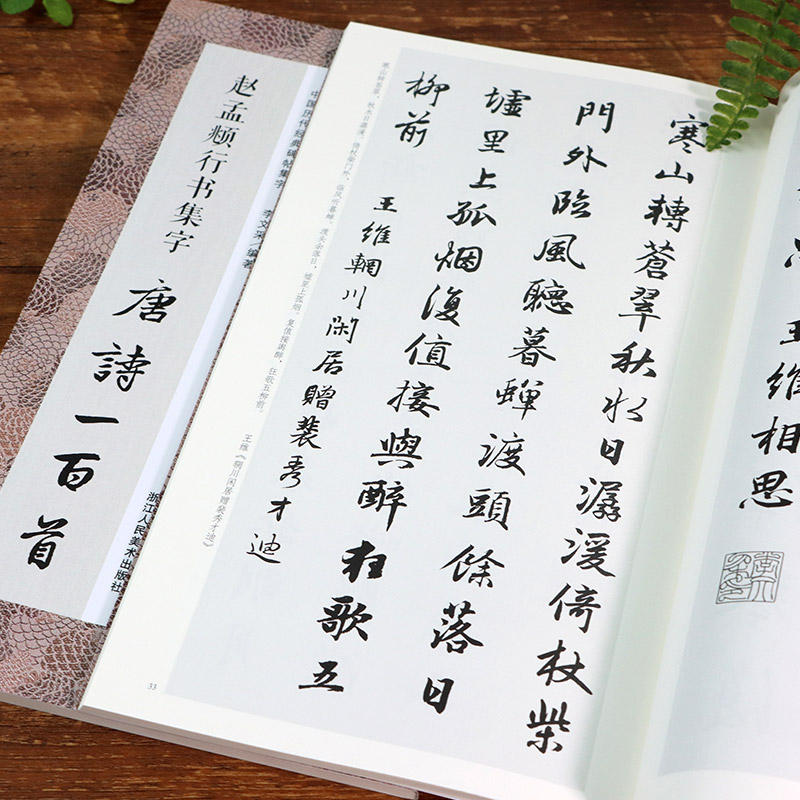 赵孟頫行书集字
唐詩一百首
中国历代经典碑帖集字
李文采 编著
浙江人民美术出版社
寒山轉蒼翠秋水日潺湲倚杖柴
門外臨風聽暮蟬渡頭餘落日
墟里上孤烟復值接輿醉狂歌五
柳前
王維輞川閑居贈裴秀才迪
寒山转苍翠，秋水日潺湲。倚杖柴门外，临风听暮蝉。渡头余落日，墟里上孤烟。复值接舆醉，狂歌五柳前。
王维《辋川闲居赠裴秀才迪》
33
王維相思